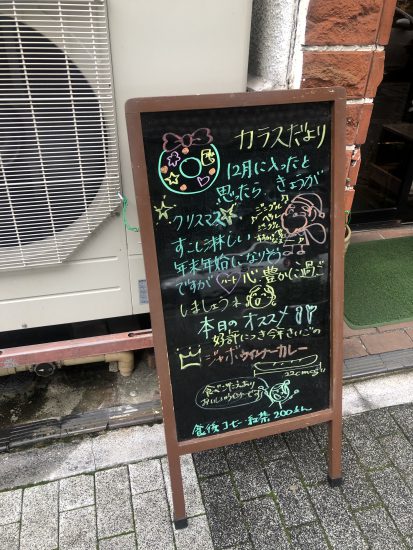 カラスだより
12月に入ったと
思ったら、きょうが
クリスマス
すこし淋しい
年末年始になりそう
ですが ハート 心豊かに過ご
しましょうネ
本日のオススメ!!
好評につき今年さいごの
ジャンボウインナーカレー
22cm
食べごたえあり
おいしいウインナーです
食後コーヒー・紅茶200えん